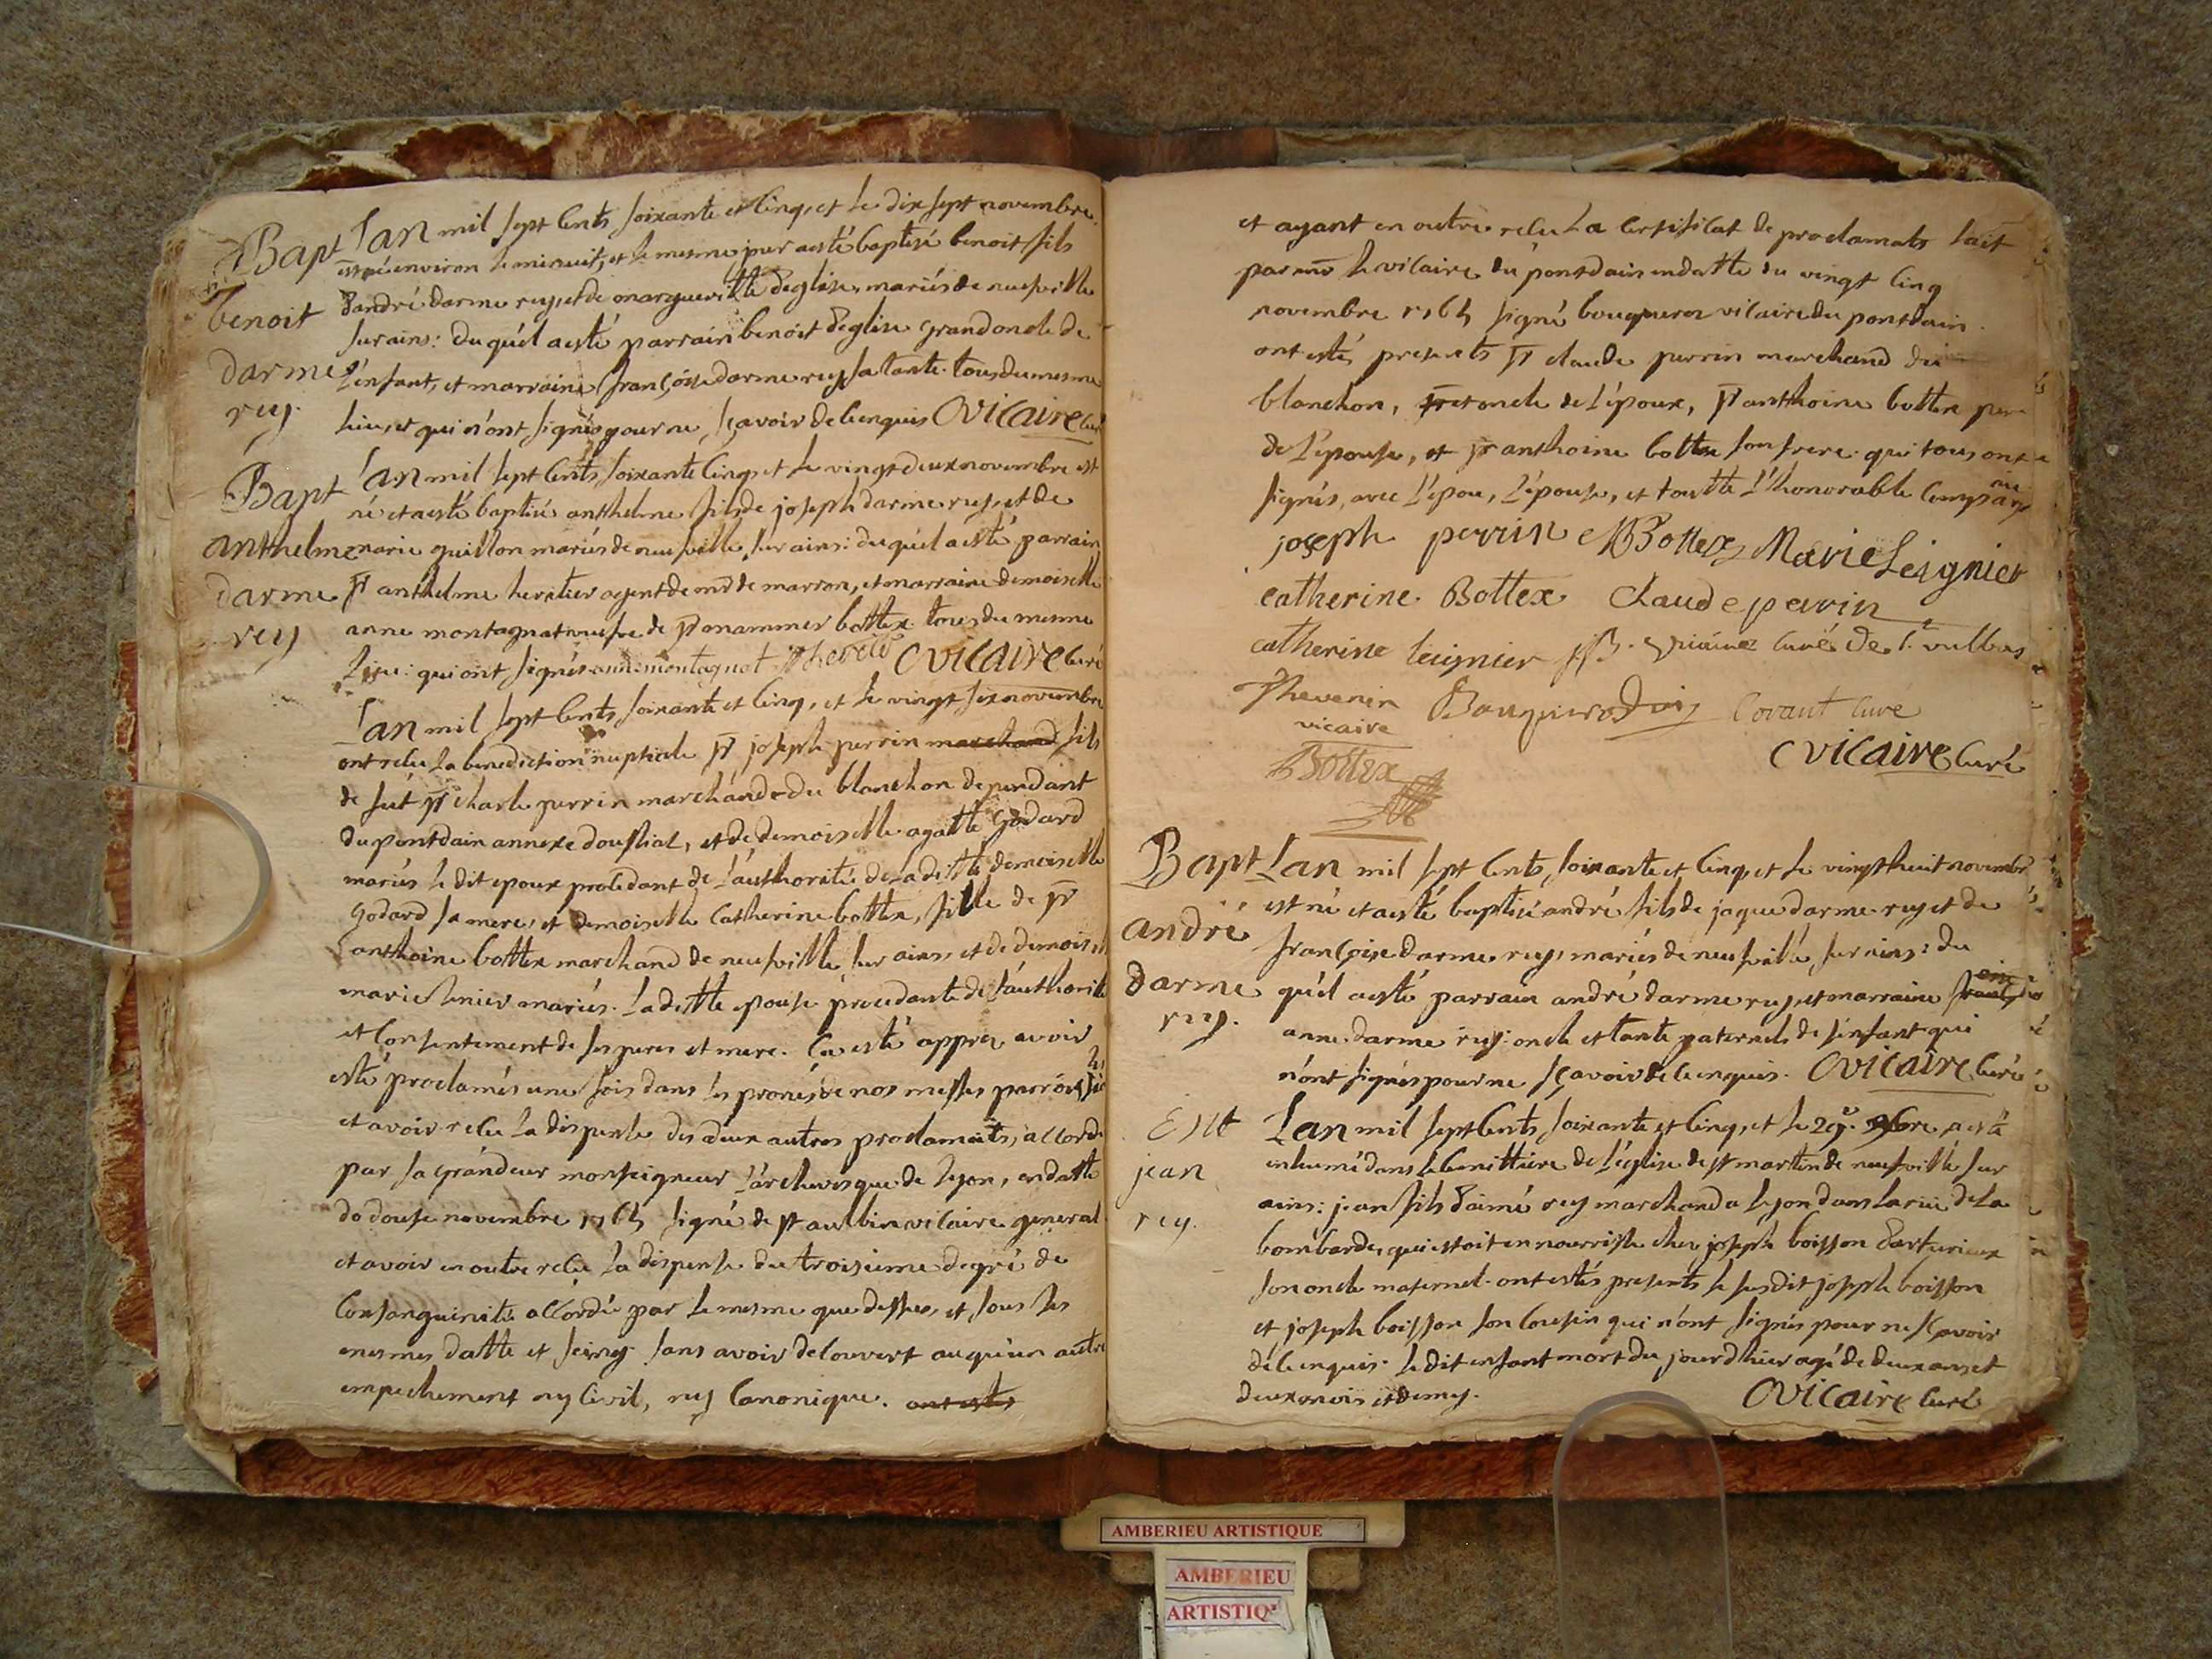 Bapt
benoit
darme
rey.
Lan mil sept cents soixante et cinq, et le dix sept novembre
est né environ le minuit, et le mesme jour a esté baptisé benoit fils
d'andré darme rey, et de margueritte deglise, mariés de neufville
sur ains: du quél a esté parrain benoit deglise grand oncle de
l'enfant, et marraine françoise darme rey sa tante. tous du mesme
lieu, et qui n'ont signés pour ne sçavoir de ce enquis Ovicaire curé
Bapt
anthelme
darme
rey
Lan mil sept cents soixante cinq, et le vingt deux novembre est
né et a esté baptisé anthelme fils de joseph darme rey, et de
marie guillon mariés de neufville sur ains: du quél a esté parrain
sr anthelme heritier agent de mr de marron, et marraine demoiselle
anne montagnat veufve de sr bottex. tous du mesme
lieu: qui ont signés anne montagnat Ovicaire curé
Lan mil sept cents soixante et cinq, et le vingt six novembre
ont reçu la benediction nuptiale sr joseph perrin marchand fils
de feut sr charle perrin marchand du blanchon dependant
du pontdain annexe doussiat, et de demoiselle agatte godard
mariés le dit epoux procedant de l'authorité de la ditte demoiselle
godard sa mere, et demoiselle catherine bottex, fille de sr
anthoine bottex marchand de neufville sur ains, et de demoiselle
marie mariés. la ditte epouse procedante de l'authorité
et consentement de ses peres et mere. ça esté apprez avoir
esté proclamés une fois dans les pronés de nos messes parroissiales
et avoir reçu la dispense des deux autres proclamats, accordé
par sa grandeur monseigneur l'archevesque de lyon, en datte
do douse novembre 1765 signé de st aulbin vicaire general
et avoir en outre reçu la dispense du troisieme degré de
consanguinité accordée par le mesme que dessus, et sous les
mesmes datte et seing. sans avoir decouvert auqu'un autre
empechement ny civil, ny canonique. ont estés
et ayant en outre reçu la certificat de proclamats fait
par mr le vicaire du pontdain en datte du vingt cinq
novembre 1765 signé bouquerot vicaire du pontdain.
ont estés presents sr claude perrin marchand du
blanchon, oncle de l'époux, sr anthoine bottex pere
de l'epouse, et sr anthoine bottex son frere. qui tous ont
signés, avec l'épou, l'épouse, et toutte l'honorable compagnie
joseph perrin Bottex Marie Leignier
catherine Bottex Claude perrin
catherine leignier curé de st. vulbas
Thevenin
vicaire
covant cure
Ovicaire curé
Bottex
Bapt
andré
darme
rey.
Lan mil sept cents soixante et cinq, et le vingt huit novembre
est né et a esté baptisé andré fils de jaque darme rey et de
françoise darme rey, mariés de neufville sur ains: du
quél a esté parrain andré darme rey, et marraine
anne darme rey: oncle et tante paternels de l'enfant qui
n'ont signés pour ne sçavoir de ce enquis. Ovicaire curé
jean
rey.
Lan mil sept cents soixante et cinq, et le 29e. 9bre a esté
inhumé dans le cemittiere de l'église de st martin de neufville sur
ains: jean fils d'aimé rey marchand a lyon dans la rüe de la
bombarde, qui estoit en nourrisse chez joseph boisson
son oncle maternel. ont estés presents le susdit joseph boisson
et joseph boisson son cousin qui n'ont signés pour ne sçavoir
dé ce enquis. le dit enfant mort du jour d'hier agé de deux ans et
deux mois et demy. Ovicaire curé
AMBERIEU ARTISTIQUE
AMBERIEU
ARTISTIQ